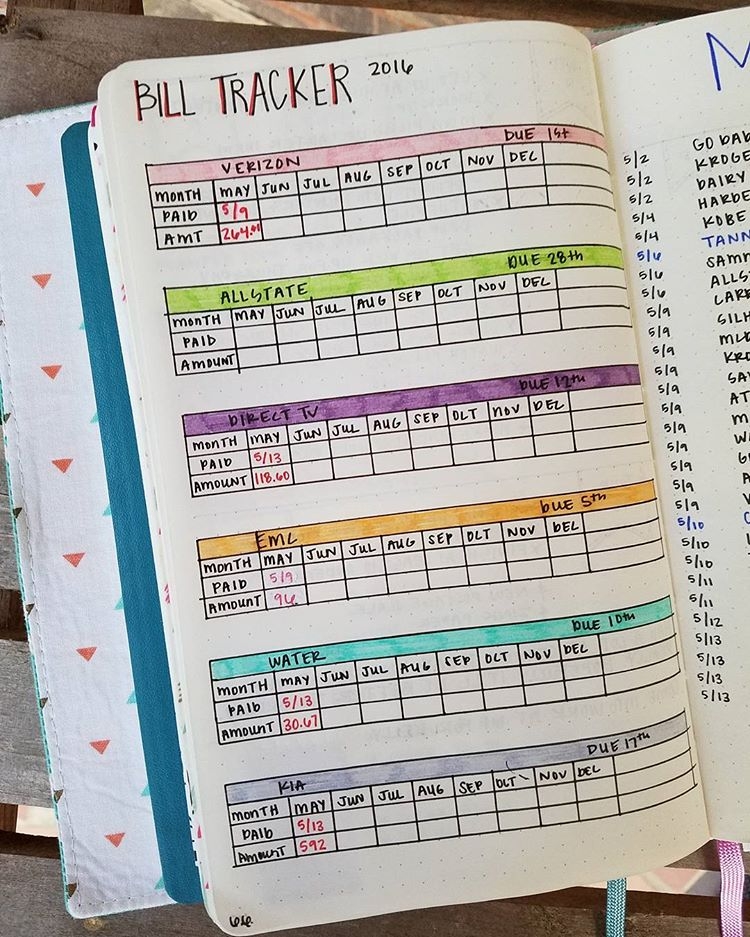 BILL TRACKER 2016
VERIZON DUE 1st
MONTH MAY JUN JUL AUG SEP OCT NOV DEC
PAID 5/9
AMT 264.41
ALLSTATE DUE 28th
MONTH MAY JUN JUL AUG SEP OCT NOV DEC
PAID
AMOUNT
DIRECT TV DUE 12th
MONTH MAY JUN JUL AUG SEP OCT NOV DEC
PAID 5/13
AMOUNT 118.60
EMC DUE 5th
MONTH MAY JUN JUL AUG SEP OCT NOV DEC
PAID 5/9
AMOUNT 96
WATER DUE 10th
MONTH MAY JUN JUL AUG SEP OCT NOV DEC
PAID 5/13
AMOUNT 30.67
KIA DUE 17th
MONTH MAY JUN JUL AUG SEP OCT NOV DEC
PAID 5/13
AMOUNT 592
66
M
5/2 GO DAD
5/2 KROGE
5/2 DAIRY
5/4 HARDE
5/4 KOBE
5/6 TANN
5/6 SAMM
5/6 ALLS
5/9 CARE
5/9 SILH
5/9
5/9 KRO
5/9
5/9
5/9
5/9
5/9
5/9
5/9
5/10
5/10
5/10
5/11
5/11
5/12
5/13
5/13
5/13
5/13